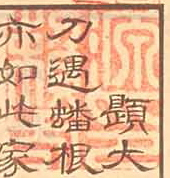 顕大
刀遇蟠根
亦如此家